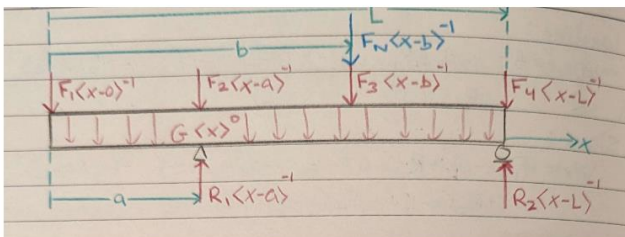 L
b
F_N<x-b>^-1
F₁<x-0>^-1
F₂<x-a>^-1
F₃<x-b>^-1
F₄<x-L>^-1
G<x>^0
x
a
R₁<x-a>^-1
R₂<x-L>^-1